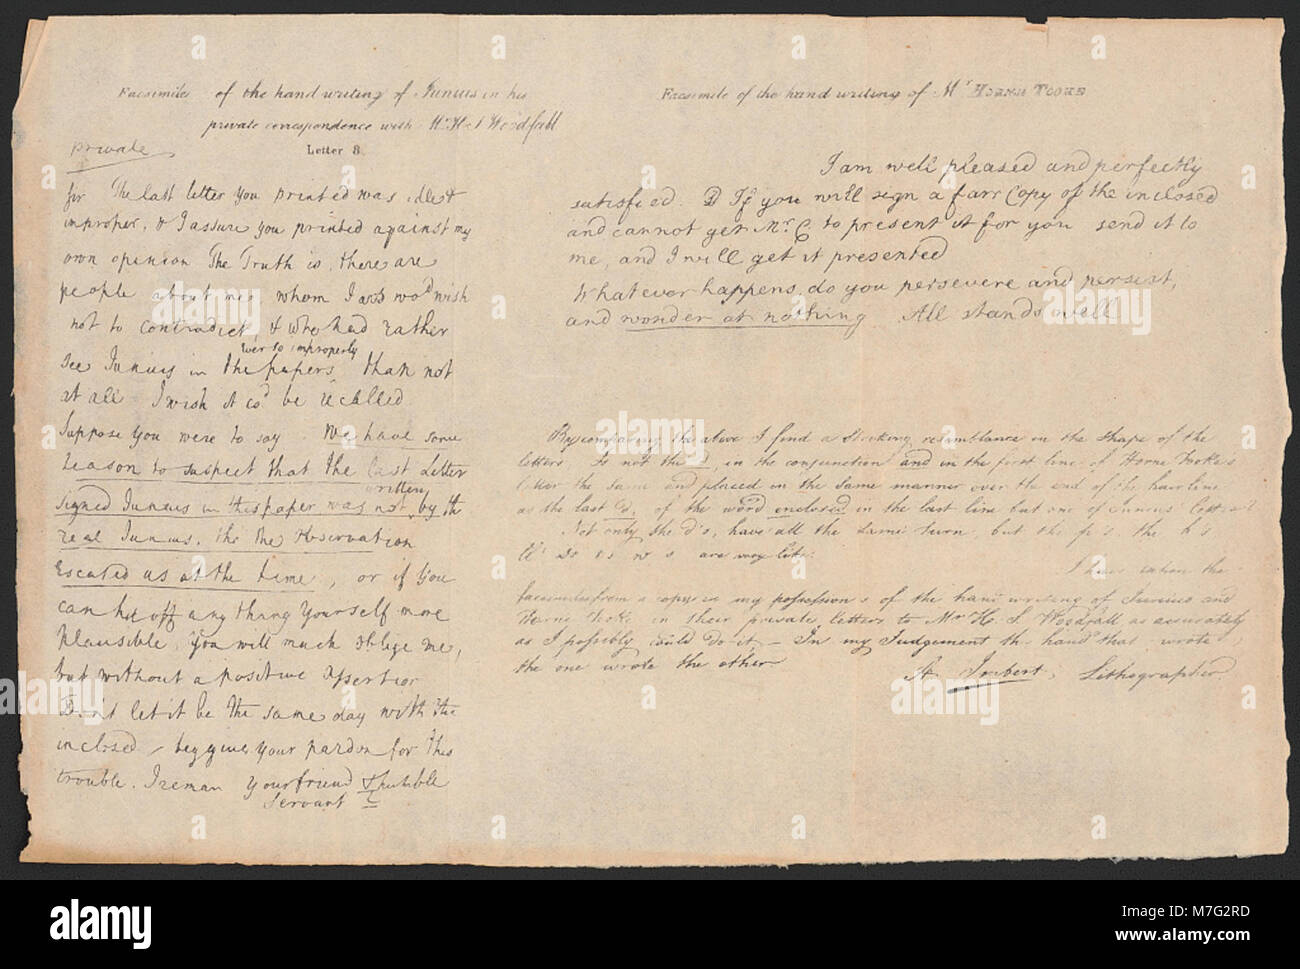 Facsimile of the hand writing of Junius in his
private correspondence with Mr. H. S Woodfall
Letter 8.
private
Sir The last letter you printed was idle &
improper, & I assure you printed against my
own opinion The Truth is, there are
people about me, whom I wod wish
not to contradict, & who had rather
ever so improperly
see Junius in the papers than not
at all I wish it cod be recalled
Suppose you were to say We have some
reason to suspect that the last Letter
written
signed Junius in this paper was not by the
real Junius, tho the Observation
Escaped us at the time, or if you
can hit off any thing yourself more
plausible, you will much oblige me,
but without a positive assertion
Dont let it be the same day with the
inclosed beg your pardon for this
trouble. I reman your friend & humble
Servant
C
Facsimile of the hand writing of Mr HORNE TOOKE
I am well pleased and perfectly
satisfied. If you will sign a fair Copy of the inclosed
and cannot get Mr. C to present it for you send it to
me, and I will get it presented
Whatever happens, do you persevere and persist,
and wonder at nothing All stands well
By comparing the above I find a striking resemblance in the shape of the
letters Is not the d, in the conjunction and in the first line of Horne Tooke's
letter the same and placed in the same manner over the end of the hair line
as the last d, of the word enclosed in the last line but one of Junius'
Not only the d's, have all the same turn, but the p's, the h's
w s are very like.
I have taken the
facsimiles from a copy in my possession of the hand writing of Junius and
Horne Tooke in their private letters to Mr H. S. Woodfall as accurately
as I possibly could do it — In my Judgement the hand that wrote
the one wrote the other
A Imbert, Lithographer
alamy
a
alamy
Image ID: M7G2RD
www.alamy.com